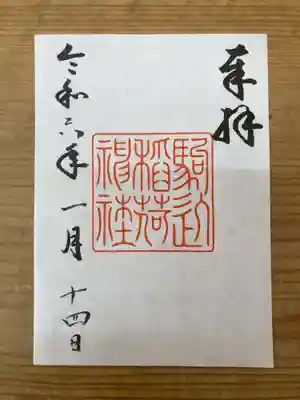 奉拝
駒込
稲荷
神社
令和六年 一月 十四日